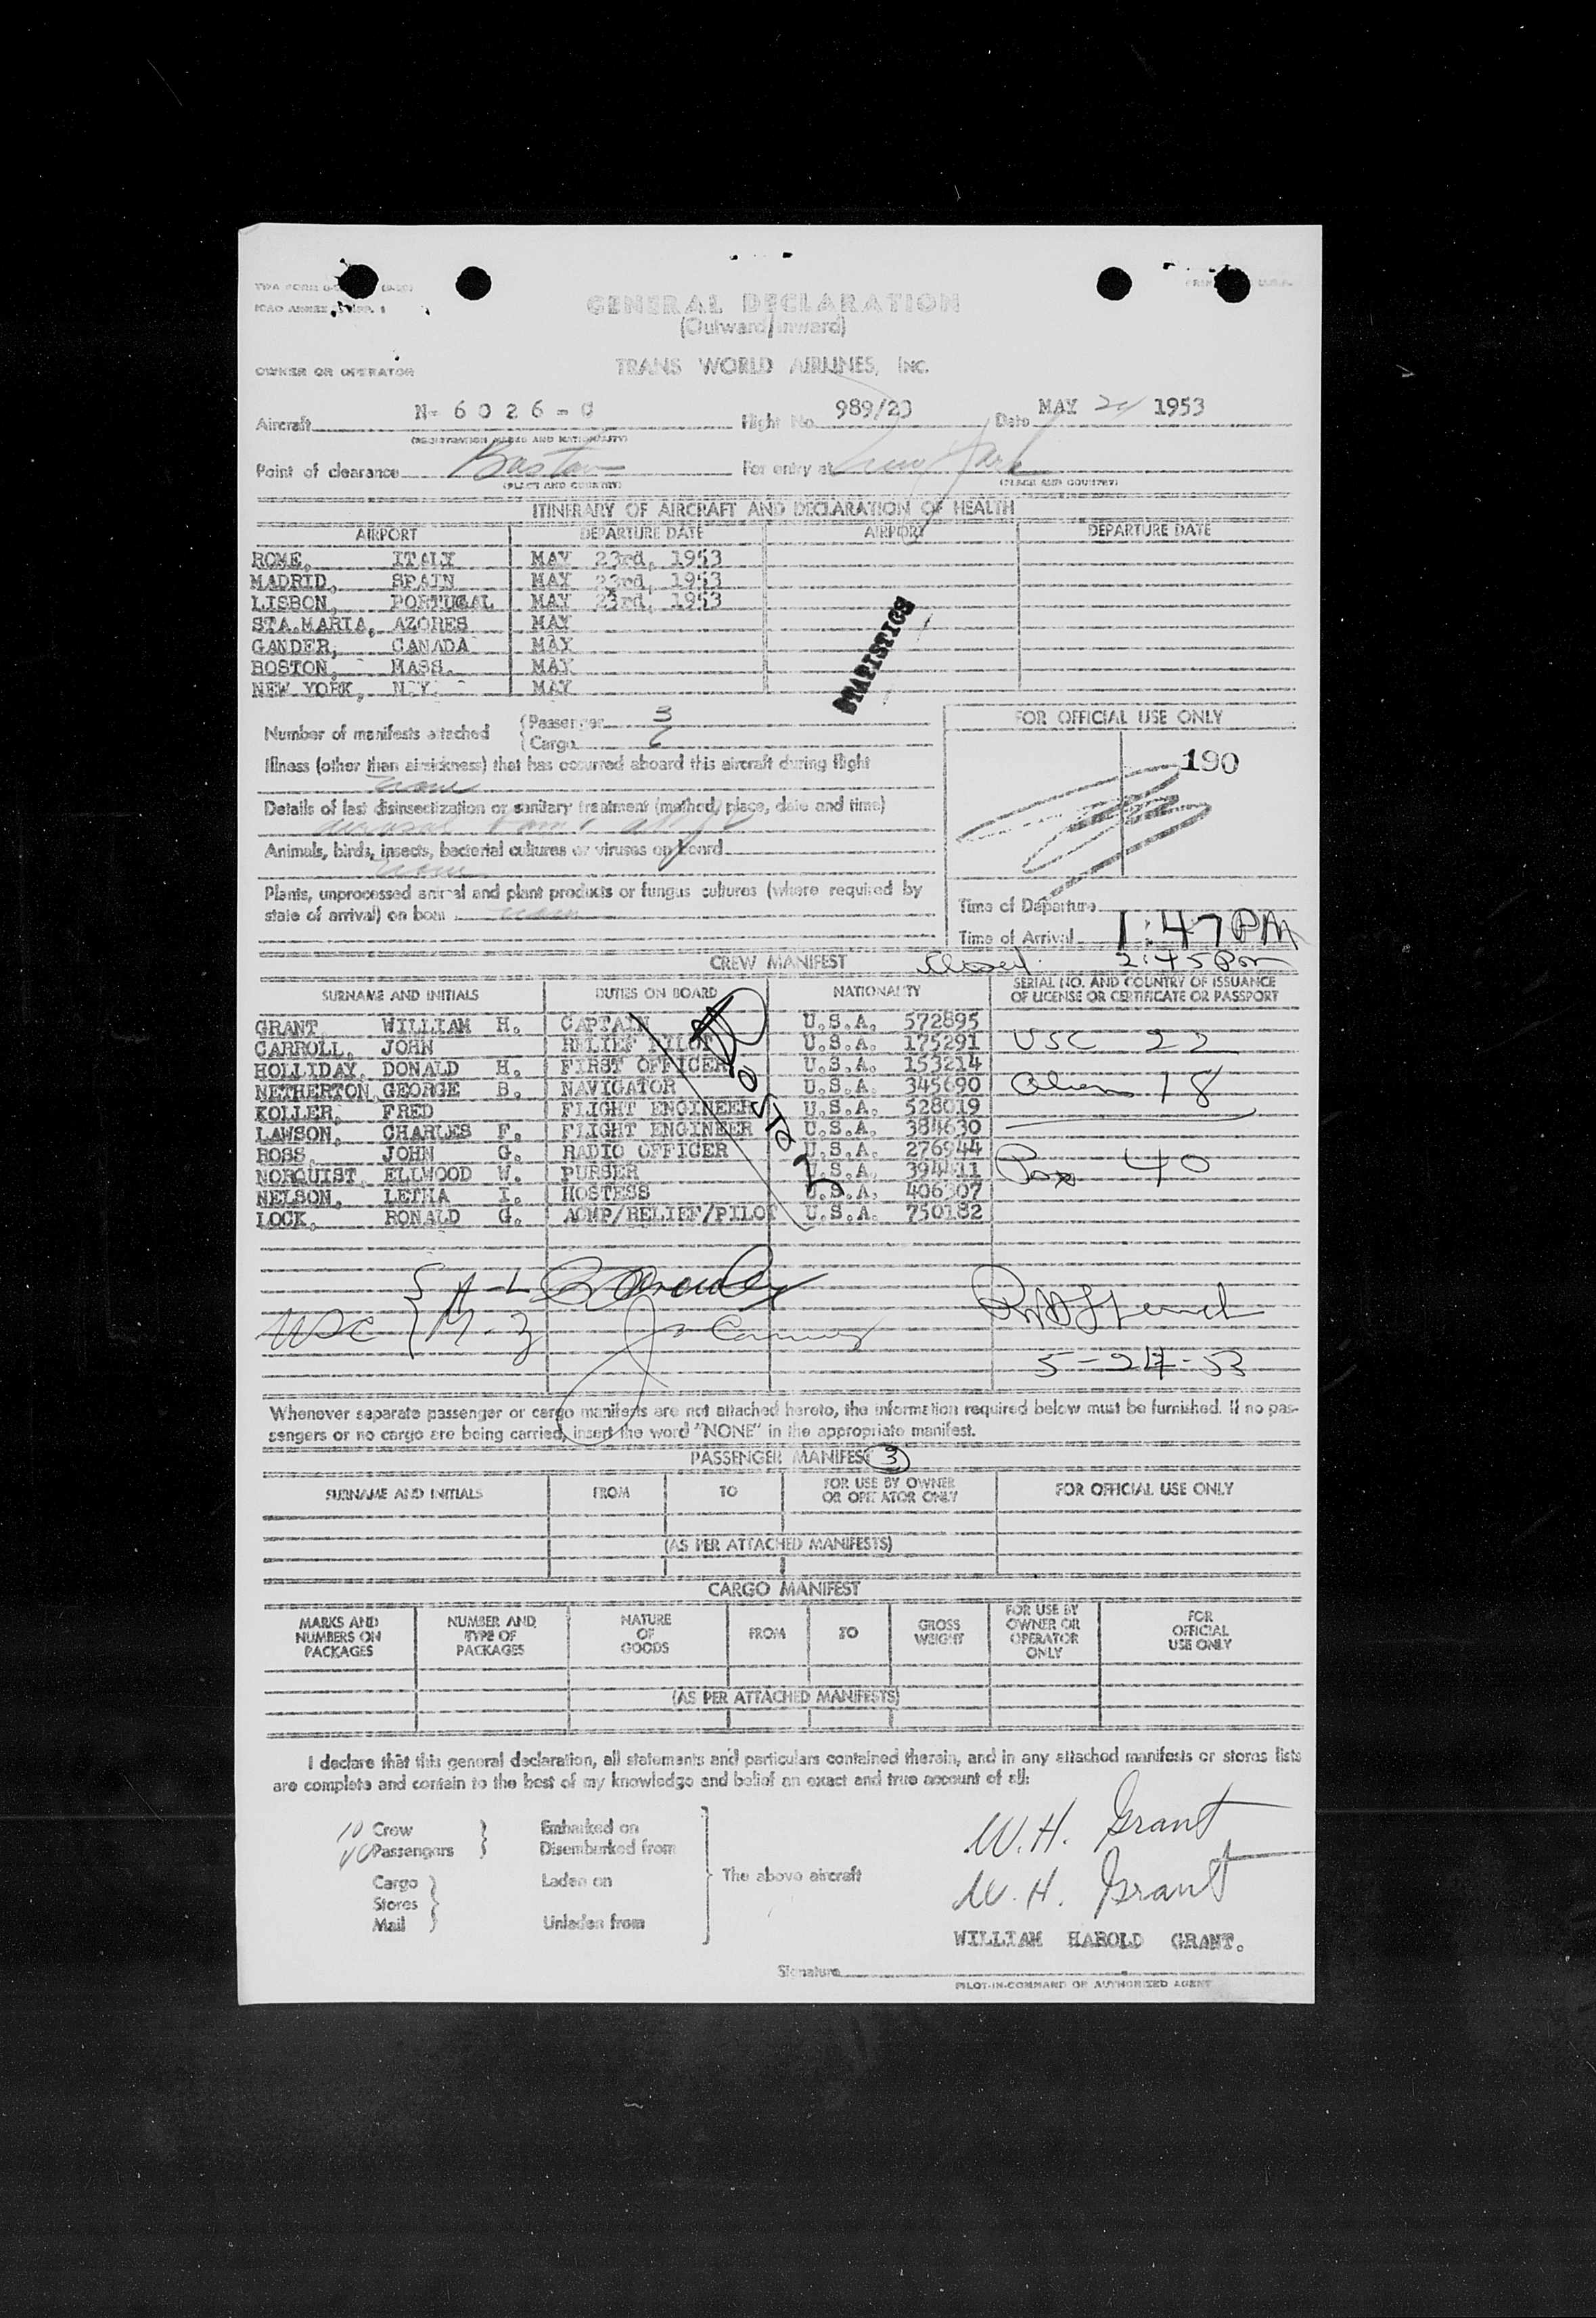 GENERAL DECLARATION
(Outward/Inward)
OWNER OR OPERATOR TRANS WORLD AIRLINES, INC.
Aircraft N- 6 0 2 6 - C Flight No. 989/23 Date MAY 24 1953
(REGISTRATION MARKS AND NATIONALITY)
Point of clearance Boston For entry at New York
(PLACE AND COUNTRY) (PLACE AND COUNTRY)
ITINERARY OF AIRCRAFT AND DECLARATION OF HEALTH
AIRPORT DEPARTURE DATE AIRPORT DEPARTURE DATE
ROME, ITALY MAY 23rd, 1953
MADRID, SPAIN MAY 23rd, 1953
LISBON, PORTUGAL MAY 23rd, 1953
STA.MARIA, AZORES MAY
GANDER, CANADA MAY
BOSTON, MASS. MAY
NEW YORK, N.Y. MAY
STATISTICS
Number of manifests attached Passenger 3
Cargo 6
FOR OFFICIAL USE ONLY
190
Illness (other than airsickness) that has occurred aboard this aircraft during flight
none
Details of last disinsectization or sanitary treatment (method, place, date and time)
aerosol
Animals, birds, insects, bacterial cultures or viruses on board
none
Plants, unprocessed animal and plant products or fungus cultures (where required by
state of arrival) on board none
Time of Departure
Time of Arrival 1:47 PM
Closed 2:45 Pm
CREW MANIFEST
SURNAME AND INITIALS DUTIES ON BOARD NATIONALITY SERIAL NO. AND COUNTRY OF ISSUANCE
OF LICENSE OR CERTIFICATE OR PASSPORT
GRANT WILLIAM H. CAPTAIN U.S.A. 572895
CARROLL, JOHN RELIEF PILOT U.S.A. 175291 USC 22
HOLLIDAY, DONALD H. FIRST OFFICER U.S.A. 153214
NETHERTON, GEORGE B. NAVIGATOR U.S.A. 345690 Alien 18
KOLLER, FRED FLIGHT ENGINEER U.S.A. 528019
LAWSON, CHARLES F. FLIGHT ENGINEER U.S.A. 384630
ROSS, JOHN G. RADIO OFFICER U.S.A. 276944
NORQUIST, ELLWOOD W. PURSER U.S.A. 394411 Pax 40
NELSON, LETHA I. HOSTESS U.S.A. 406307
LOCK, RONALD G. ACMP/RELIEF/PILOT U.S.A. 750182
A-L
USC M-Z
5-24-53
Whenever separate passenger or cargo manifests are not attached hereto, the information required below must be furnished. If no pas-
sengers or no cargo are being carried, insert the word "NONE" in the appropriate manifest.
PASSENGER MANIFEST 3
SURNAME AND INITIALS FROM TO FOR USE BY OWNER
OR OPERATOR ONLY FOR OFFICIAL USE ONLY
(AS PER ATTACHED MANIFESTS)
CARGO MANIFEST
MARKS AND
NUMBERS ON
PACKAGES NUMBER AND
TYPE OF
PACKAGES NATURE
OF
GOODS FROM TO GROSS
WEIGHT FOR USE BY
OWNER OR
OPERATOR
ONLY FOR
OFFICIAL
USE ONLY
(AS PER ATTACHED MANIFESTS)
I declare that this general declaration, all statements and particulars contained therein, and in any attached manifests or stores lists
are complete and contain to the best of my knowledge and belief an exact and true account of all:
10 Crew Embarked on
40 Passengers Disembarked from
Cargo Laden on The above aircraft
Stores
Mail Unladen from
W.H. Grant
W.H. Grant
WILLIAM HAROLD GRANT.
Signature
PILOT-IN-COMMAND OR AUTHORIZED AGENT